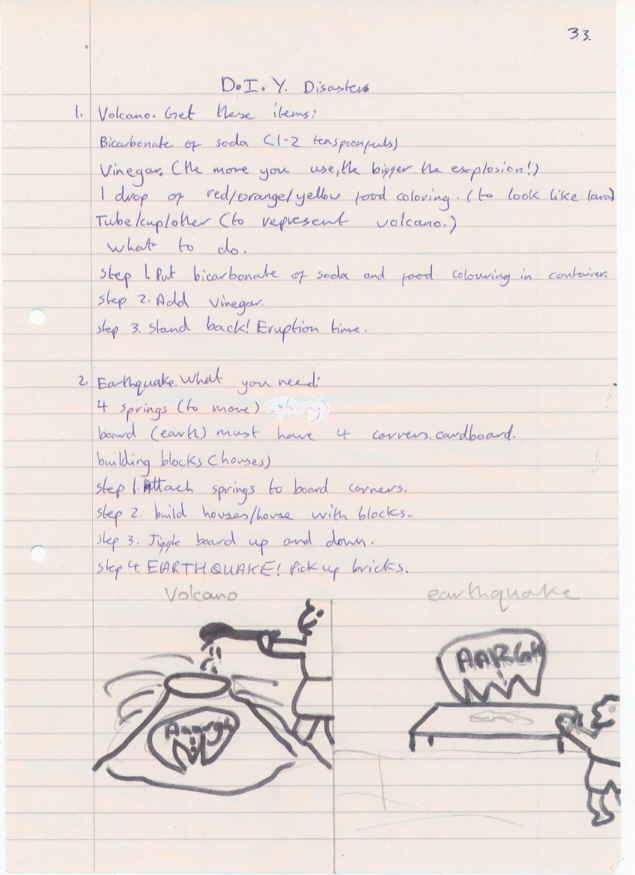 33.
D.I.Y. Disasters
1. Volcano. Get these items:
Bicarbonate of soda (1-2 teaspoonfuls)
Vinegar. (the more you use, the bigger the explosion!)
1 drop of red/orange/yellow food coloring. (to look like lava)
Tube/cup/other (to represent volcano.)
What to do.
Step 1. Put bicarbonate of soda and food colouring in container.
Step 2. Add Vinegar.
Step 3. Stand back! Eruption time.
2. Earthquake. What you need:
4 springs (to move)
board (earth) must have 4 corners. cardboard.
building blocks (houses)
Step 1. Attach springs to board corners.
Step 2. build houses/house with blocks.
Step 3. Jiggle board up and down.
Step 4. EARTHQUAKE! Pick up bricks.
Volcano
earthquake
Aaargh
!
AARGH
!